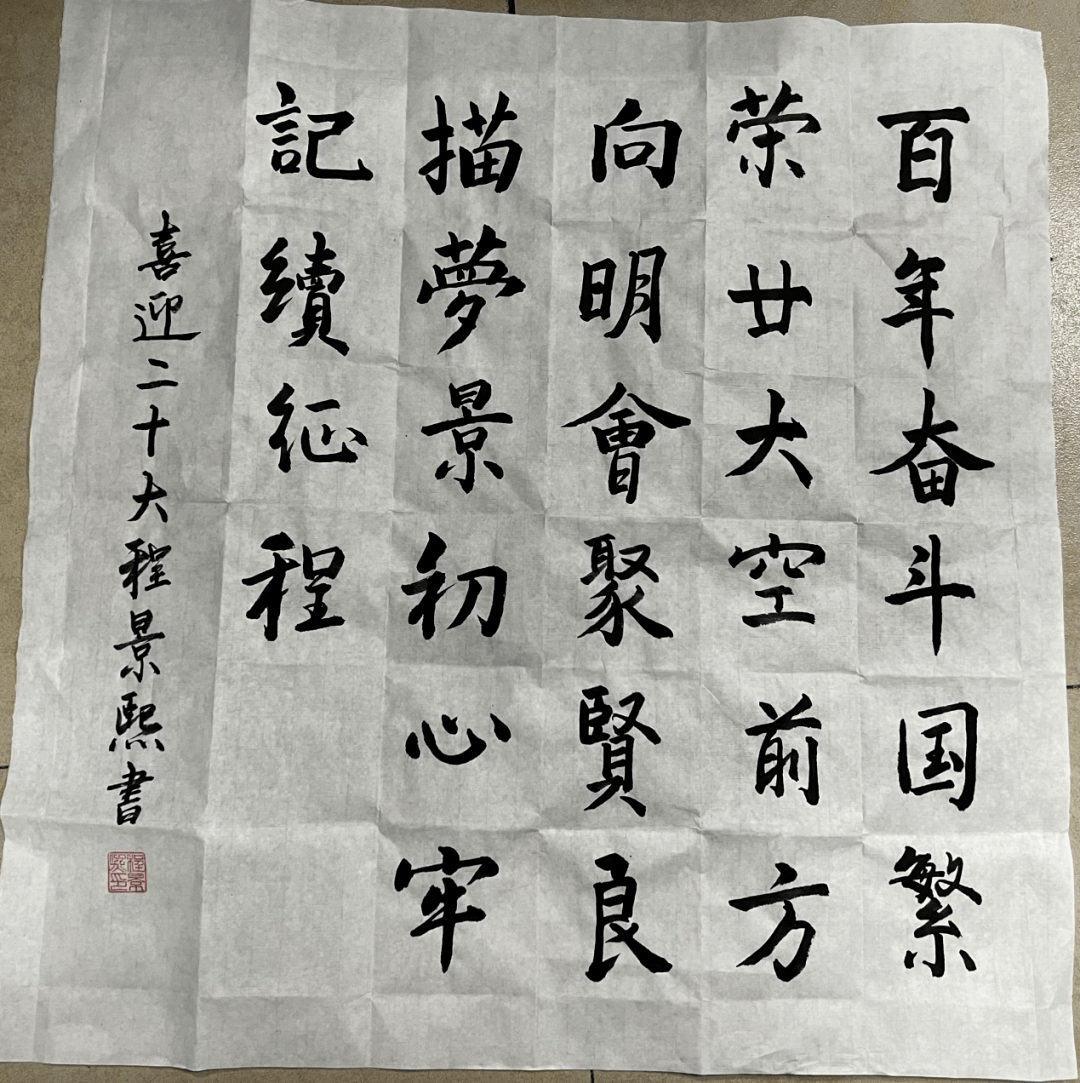 百年奋斗国繁
荣廿大空前方
向明會聚賢良
描夢景初心牢
記續征程
喜迎二十大程景熙書